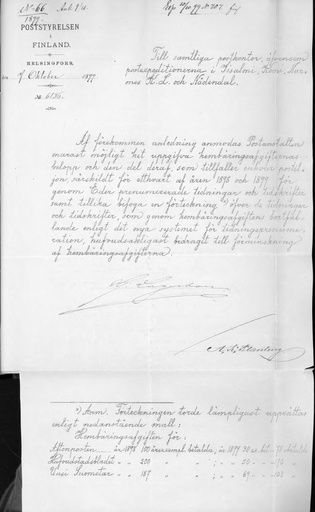 № 66
1899.
POSTSTYRELSEN
I
FINLAND.
HELSINGFORS,
7 Oktober 1899.
№ 6136.
Till samtliga postkontor äfvensom
postexpeditionerna i Iisalmi, Kemi, Nur-
mes K. L. och Nådendal.
Af förekommen anledning anmodas Postanstalten
snarast möjligt hit uppgifva hembäringsafgifternas
belopp och den del deraf, som tillfaller enhvar postil-
jon, särskildt för ettvart af åren 1898 och 1899, för
genom Eder prenumererade tidningar och tidskrifter
samt tillika bifoga en förteckning *) öfver de tidningar
och tidskrifter, som genom hembäringsafgiftens bortfal-
lande enligt det nya systemet för tidningsprenume-
ration, hufvudsakligast bidragit till förminskning
af hembäringsafgifterna.
*) Anm. Förteckningen torde lämpligast upprättas
enligt nedanstående mall:
Hembäringsafgiften för:
Aftonposten, år 1898 100 årsexempl. betalda, år 1899 30 ex. bet. 70 obetalda
Hufvudstadsbladet " 200 " " ; " 50 "
Uusi Suometar " 187 " " ; "